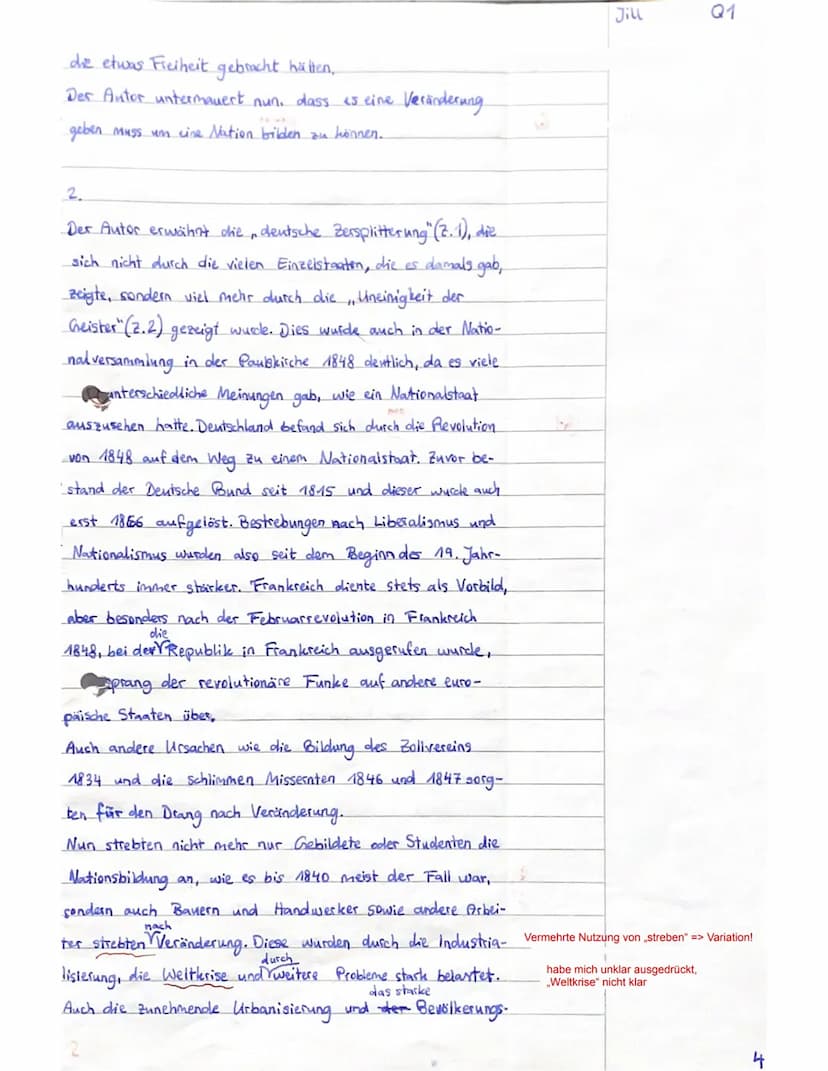 Jill Q1
die etwas Freiheit gebracht hätten.
Der Autor untermauert nun, dass es eine Veränderung
geben muss um eine Nation bilden zu können.
2.
Der Autor erwähnt die „deutsche Zersplitterung" (Z.1), die
sich nicht durch die vielen Einzelstaaten, die es damals gab,
zeigte, sondern viel mehr durch die „Uneinigkeit der
Geister" (Z.2) gezeigt wurde. Dies wurde auch in der Natio-
nalversammlung in der Paulskirche 1848 deutlich, da es viele
unterschiedliche Meinungen gab, wie ein Nationalstaat
auszusehen hatte. Deutschland befand sich durch die Revolution
von 1848 auf dem Weg zu einem Nationalstaat. Zuvor be-
stand der Deutsche Bund seit 1815 und dieser wurde auch
erst 1866 aufgelöst. Bestrebungen nach Liberalismus und
Nationalismus wurden also seit dem Beginn des 19. Jahr-
hunderts immer stärker. Frankreich diente stets als Vorbild,
aber besonders nach der Februarrevolution in Frankreich
die
1848, bei der Republik in Frankreich ausgerufen wurde,
sprang der revolutionäre Funke auf andere euro-
päische Staaten über.
Auch andere Ursachen wie die Bildung des Zollvereins
1834 und die schlimmen Missernten 1846 und 1847 sorg-
ten für den Drang nach Veränderung.
Nun strebten nicht mehr nur Gebildete oder Studenten die
Nationsbildung an, wie es bis 1840 meist der Fall war,
sondern auch Bauern und Handwerker sowie andere Arbei-
nach
ter strebten Veränderung. Diese wurden durch die Industria- Vermehrte Nutzung von „streben" => Variation!
durch
lisierung, die Weltkrise und weitere Probleme stark belastet. habe mich unklar ausgedrückt,
„Weltkrise" nicht klar
das starke
Auch die zunehmende Urbanisierung und der Bevölkerungs-
2
4